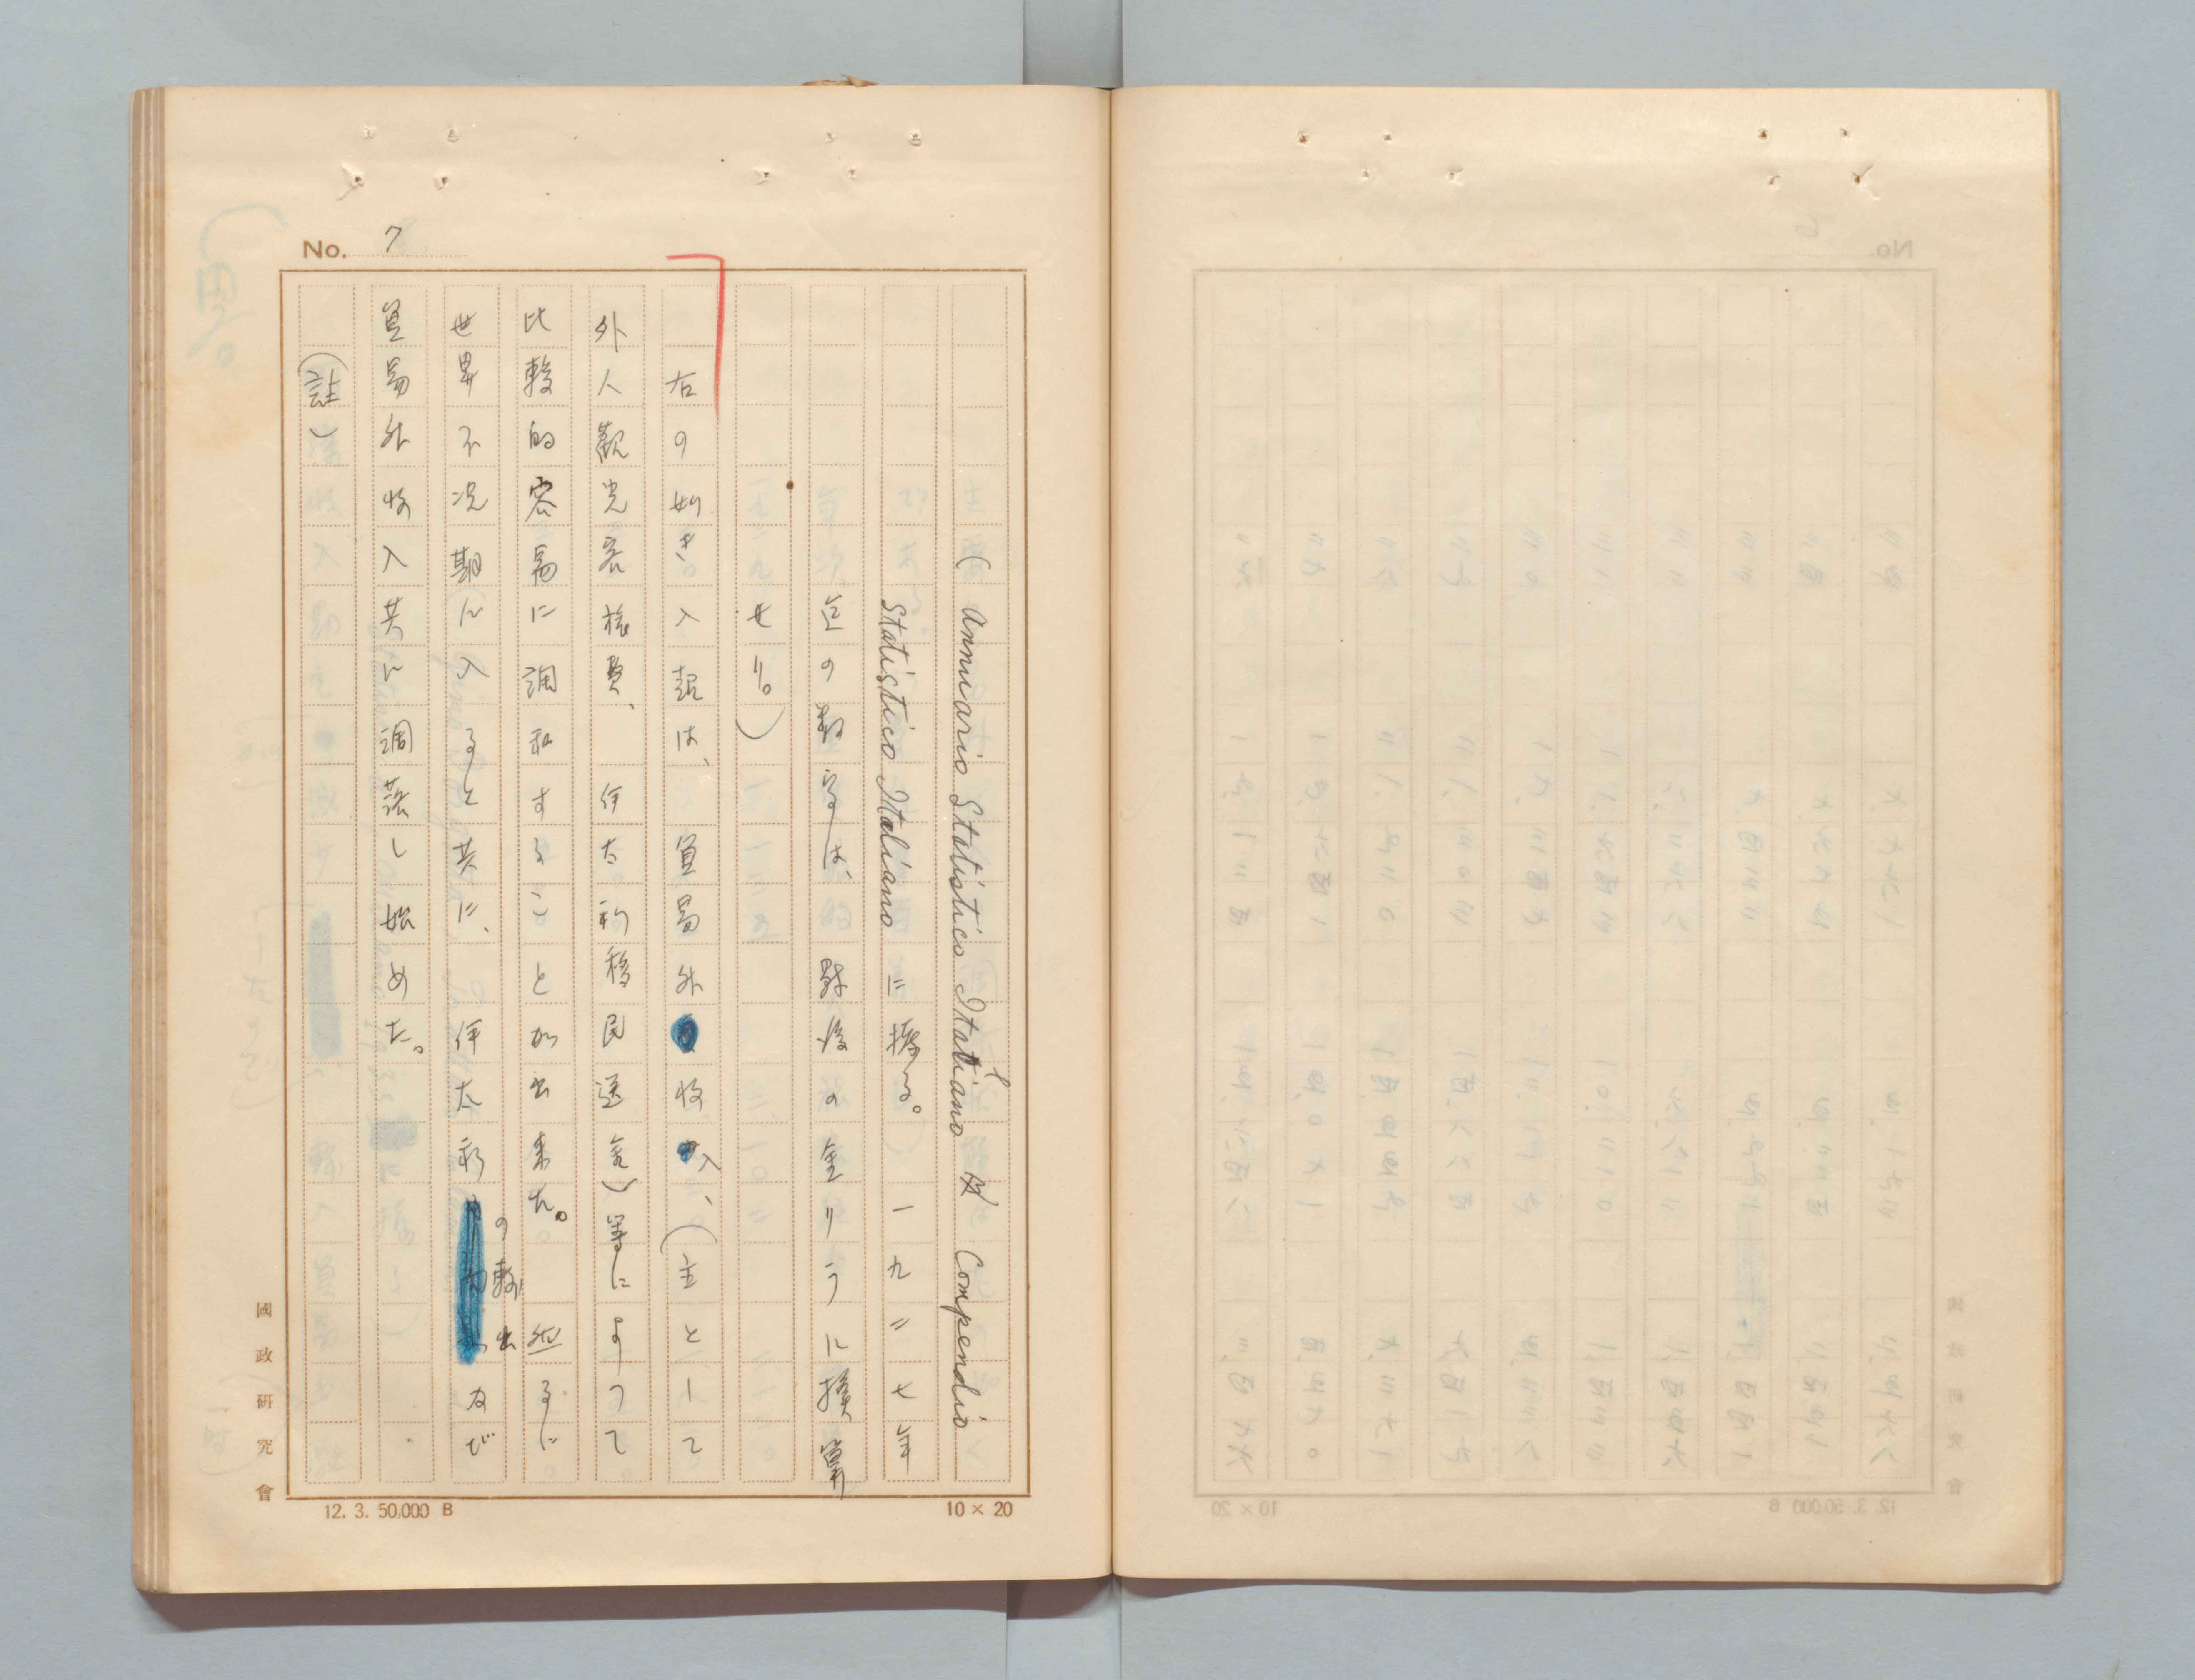 No. 7
(Annuario Statistico Italiano 及 Compendio
Statistico Italiano に據る。一九二七年
迄の数字は、爾後の金リラに換算
せり。)
右の如き入超は、貿易外收入、(主として
外人観光客旅費、伊太利移民送金)等によつて
比較的容易に調和することが出来た。然るに
世界不況期に入ると共に、伊太利の輸出及び
貿易外收入共に凋落し始めた。
(註)
國政研究會
12. 3. 50,000 B
10 × 20